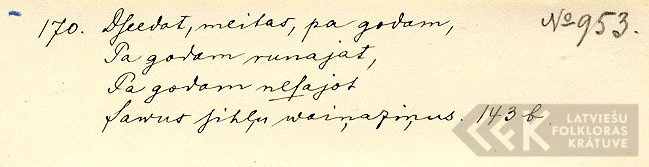 170. Dseedat, meitas, pa godam, No 953.
Pa godam runajat,
Pa godam nesajot
sawus sihļu waiņaziņus. 143 b
LATVIEŠU
FOLKLORAS
KRĀTUVE